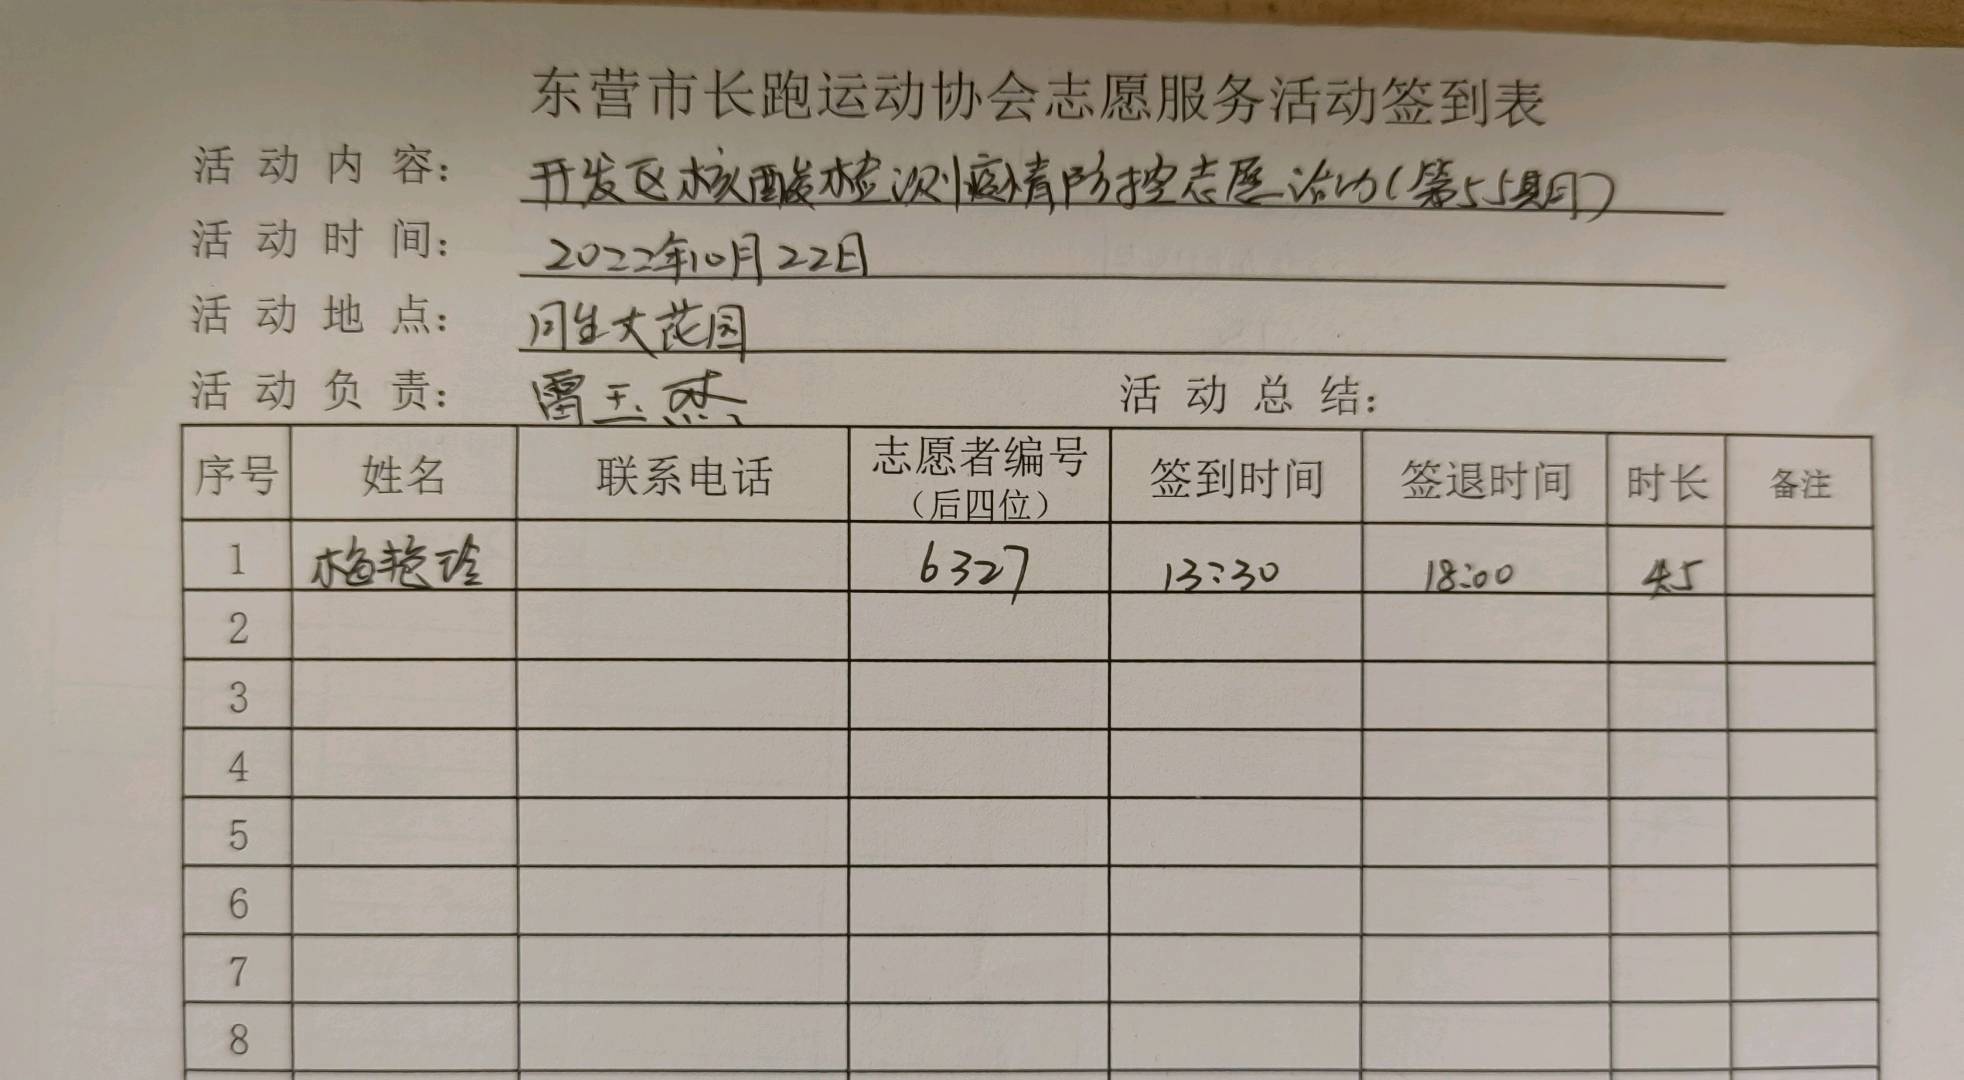 东营市长跑运动协会志愿服务活动签到表
活动内容： 开发区核酸检测疫情防控志愿活动（第55期）
活动时间： 2022年10月22日
活动地点： 同生大花园
活动负责： 雷玉杰 活动总结：
序号 姓名 联系电话 志愿者编号（后四位） 签到时间 签退时间 时长 备注
1 梅艳玲 6327 13:30 18:00 4.5
2
3
4
5
6
7
8